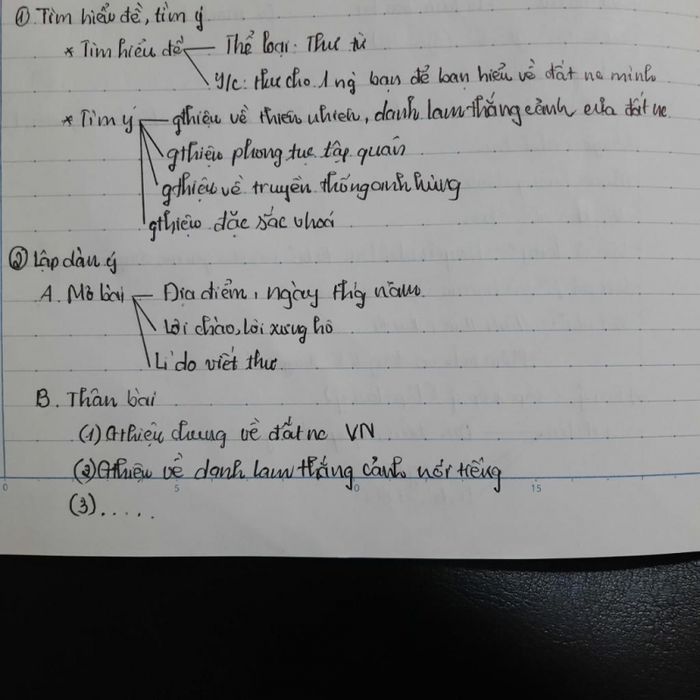 ① Tìm hiểu đề, tìm ý
* Tìm hiểu đề — Thể loại: Thư từ
Y/c: thư cho 1 ng bạn để bạn hiểu về đất nc mình
* Tìm ý — gthiệu về thiên nhiên, danh lam thắng cảnh của đất nc
gthiệu phong tục tập quán
gthiệu về truyền thống anh hùng
gthiệu đặc sắc vhoá
② Lập dàn ý
A. Mở bài — Địa điểm, ngày thg năm
Lời chào, lời xưng hô
Lí do viết thư
B. Thân bài
(1) Gthiệu chung về đất nc VN
(2) Gthiệu về danh lam thắng cảnh nổi tiếng
0 5 0 15
(3).....